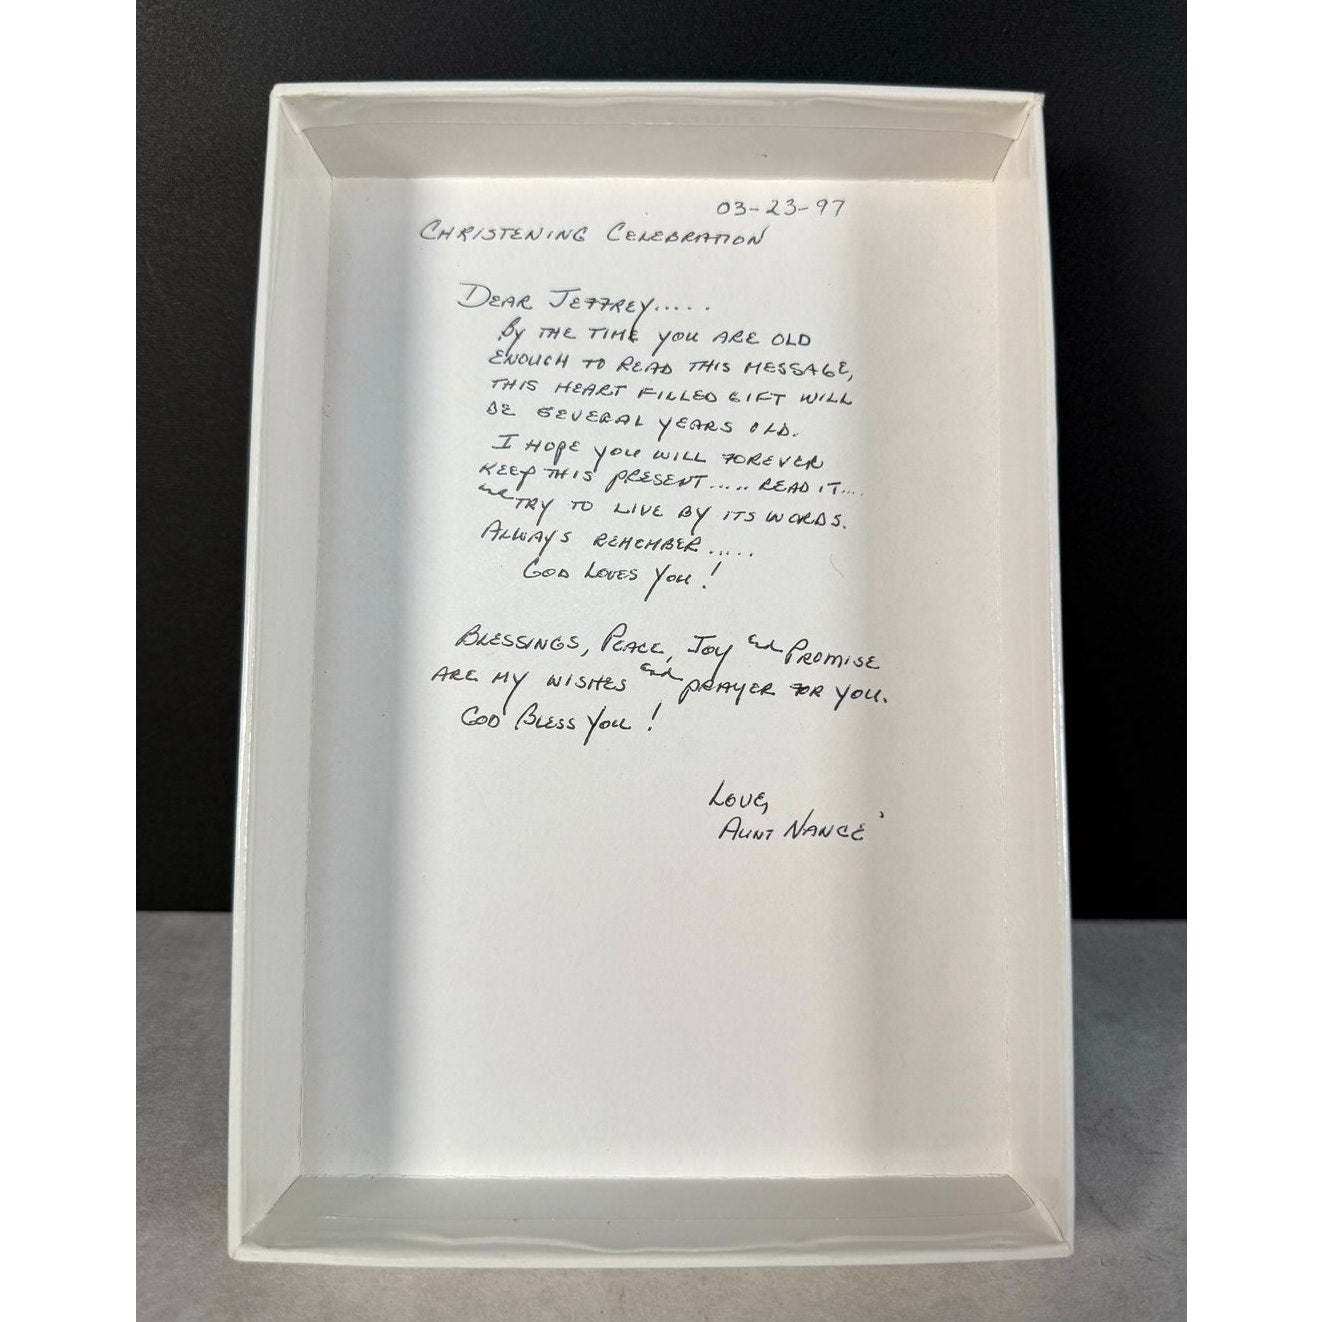 03-23-97
CHRISTENING CELEBRATION
DEAR JEFFREY.....
BY THE TIME YOU ARE OLD
ENOUGH TO READ THIS MESSAGE,
THIS HEART FILLED GIFT WILL
BE SEVERAL YEARS OLD.
I HOPE YOU WILL FOREVER
KEEP THIS PRESENT..... READ IT....
and TRY TO LIVE BY ITS WORDS.
ALWAYS REMEMBER.....
GOD LOVES YOU!
BLESSINGS, PEACE, JOY and PROMISE
ARE MY WISHES and PRAYER FOR YOU.
GOD BLESS YOU!
LOVE,
AUNT NANCE'